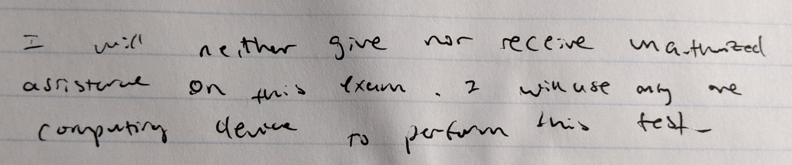 I will neither give nor receive unauthorized
assistance on this exam. I will use only one
computing device to perform this test.